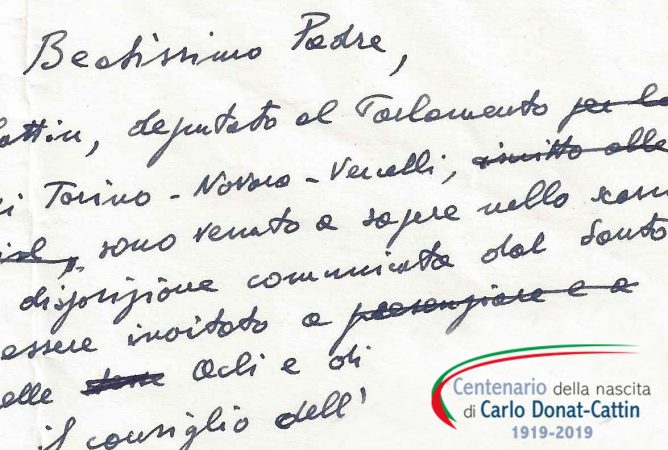 Beatissimo Padre,
attin, deputato al Parlamento per la
i Torino - Novara - Vercelli, iscritto alle
sono venuto a sapere nello scors
disposizione comunicata dal Santo
essere invitato a presenziare e a
elle Acli e di
il consiglio dell'
Centenario della nascita
di Carlo Donat-Cattin
1919-2019